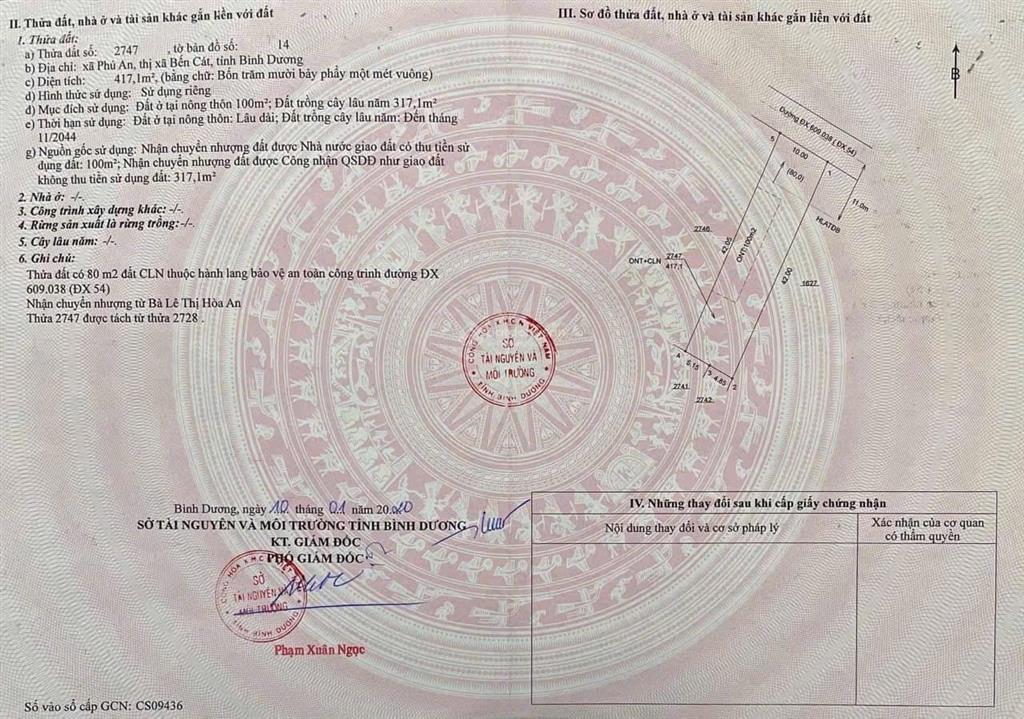 II. Thửa đất, nhà ở và tài sản khác gắn liền với đất
1. Thửa đất:
a) Thửa đất số: 2747 , tờ bản đồ số: 14
b) Địa chỉ: xã Phú An, thị xã Bến Cát, tỉnh Bình Dương
c) Diện tích: 417,1m², (bằng chữ: Bốn trăm mười bảy phẩy một mét vuông)
d) Hình thức sử dụng: Sử dụng riêng
đ) Mục đích sử dụng: Đất ở tại nông thôn 100m²; Đất trồng cây lâu năm 317,1m²
e) Thời hạn sử dụng: Đất ở tại nông thôn: Lâu dài; Đất trồng cây lâu năm: Đến tháng
11/2044
g) Nguồn gốc sử dụng: Nhận chuyển nhượng đất được Nhà nước giao đất có thu tiền sử
dụng đất: 100m²; Nhận chuyển nhượng đất được Công nhận QSDĐ như giao đất
không thu tiền sử dụng đất: 317,1m²
2. Nhà ở: -/-.
3. Công trình xây dựng khác: -/-.
4. Rừng sản xuất là rừng trồng:-/-.
5. Cây lâu năm: -/-.
6. Ghi chú:
Thửa đất có 80 m2 đất CLN thuộc hành lang bảo vệ an toàn công trình đường ĐX
609.038 (ĐX 54)
Nhận chuyển nhượng từ Bà Lê Thị Hòa An
Thửa 2747 được tách từ thửa 2728 .
III. Sơ đồ thửa đất, nhà ở và tài sản khác gắn liền với đất
B
Đường ĐX 609.038 ( ĐX 54)
5
10.00
1
(80.0)
11.0m
HLATĐB
2746
42.05
ONT:100m2
ONT+CLN
2747
417.1
42.00
1627
4
5.15
3
4.85
2
2741
2742
CỘNG HÒA X.H.C.N VIỆT NAM
SỞ
TÀI NGUYÊN VÀ
MÔI TRƯỜNG
TỈNH BÌNH DƯƠNG
Bình Dương, ngày 10 tháng 01 năm 2020
SỞ TÀI NGUYÊN VÀ MÔI TRƯỜNG TỈNH BÌNH DƯƠNG
KT. GIÁM ĐỐC
PHÓ GIÁM ĐỐC
CỘNG HÒA X.H.C.N VIỆT NAM
SỞ
TÀI NGUYÊN VÀ
MÔI TRƯỜNG
TỈNH BÌNH DƯƠNG
Phạm Xuân Ngọc
IV. Những thay đổi sau khi cấp giấy chứng nhận
Nội dung thay đổi và cơ sở pháp lý
Xác nhận của cơ quan
có thẩm quyền
Số vào sổ cấp GCN: CS09436